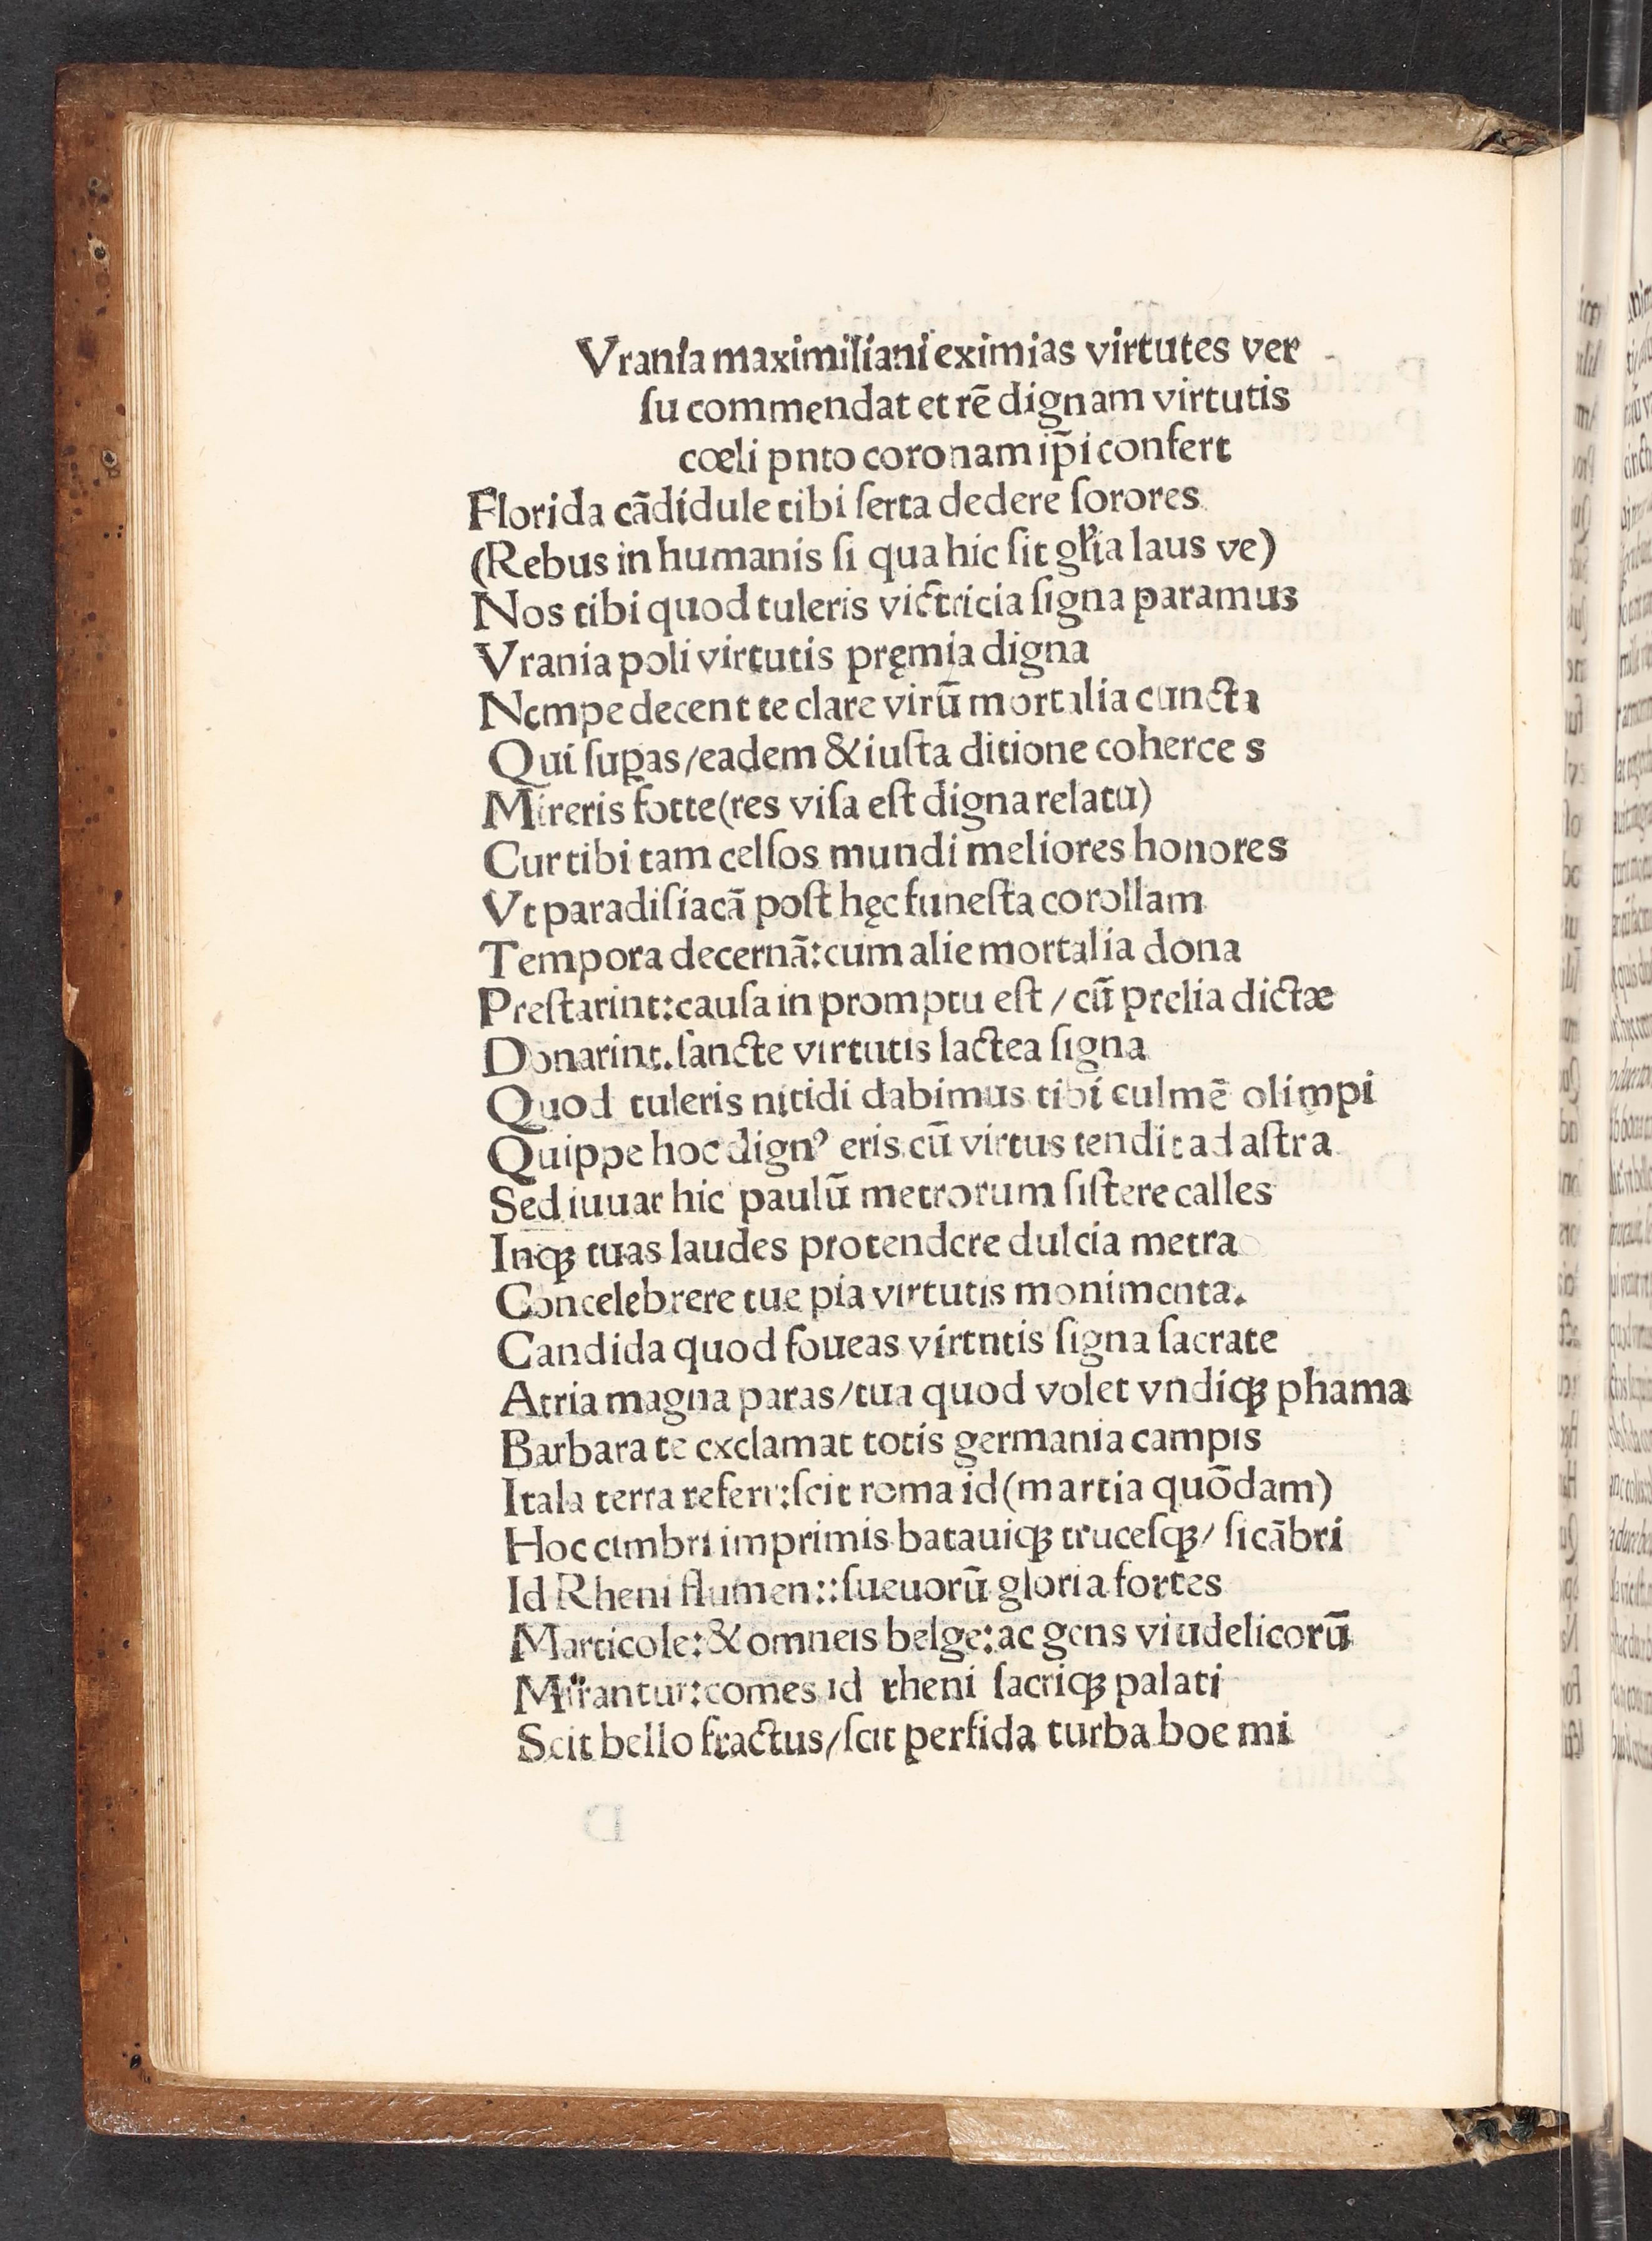 Vrania maximiliani eximias virtutes ver
ſu commendat et rē dignam virtutis
cœli pnto coronam ip̄i confert
Florida cādidule tibi ſerta dedere ſorores
(Rebus in humanis ſi qua hic ſit gl̄ia laus ve)
Nos tibi quod tuleris victricia ſigna paramus
Vrania poli virtutis pręmia digna
Nempe decent te clare virū mortalia cuncta
Qui ſuꝑas/eadem & iuſta ditione coherce s
Mireris fotte(res viſa eſt digna relatu)
Cur tibi tam celſos mundi meliores honores
Vt paradiſiacā poſt hęc funeſta corollam
Tempora decernā:cum alie mortalia dona
Preſtarint:cauſa in promptu eſt / cū prelia dictæ
Donarint.ſancte virtutis lactea ſigna
Quod tuleris nitidi dabimus tibi culmē olimpi
Quippe hoc dignꝰ eris cū virtus tendit ad aſtra
Sed iuuat hic paulū metrorum ſiſtere calles
Inqꝫ tuas laudes protendere dulcia metra
Concelebrere tue pia virtutis monimenta.
Candida quod foueas virtntis ſigna ſacrate
Atria magna paras/tua quod volet vndiqꝫ phama
Barbara te exclamat totis germania campis
Itala terra refert:ſcit roma id(martia quōdam)
Hoc cimbri imprimis batauiqꝫ truceſqꝫ/ ſicābri
Id Rheni flumen::ſueuorū gloria fortes
Marticole:& omneis belge:ac gens viudelicorū
Mirantur:comes id rheni ſacriqꝫ palati
Scit bello fractus/ſcit perfida turba boe mi